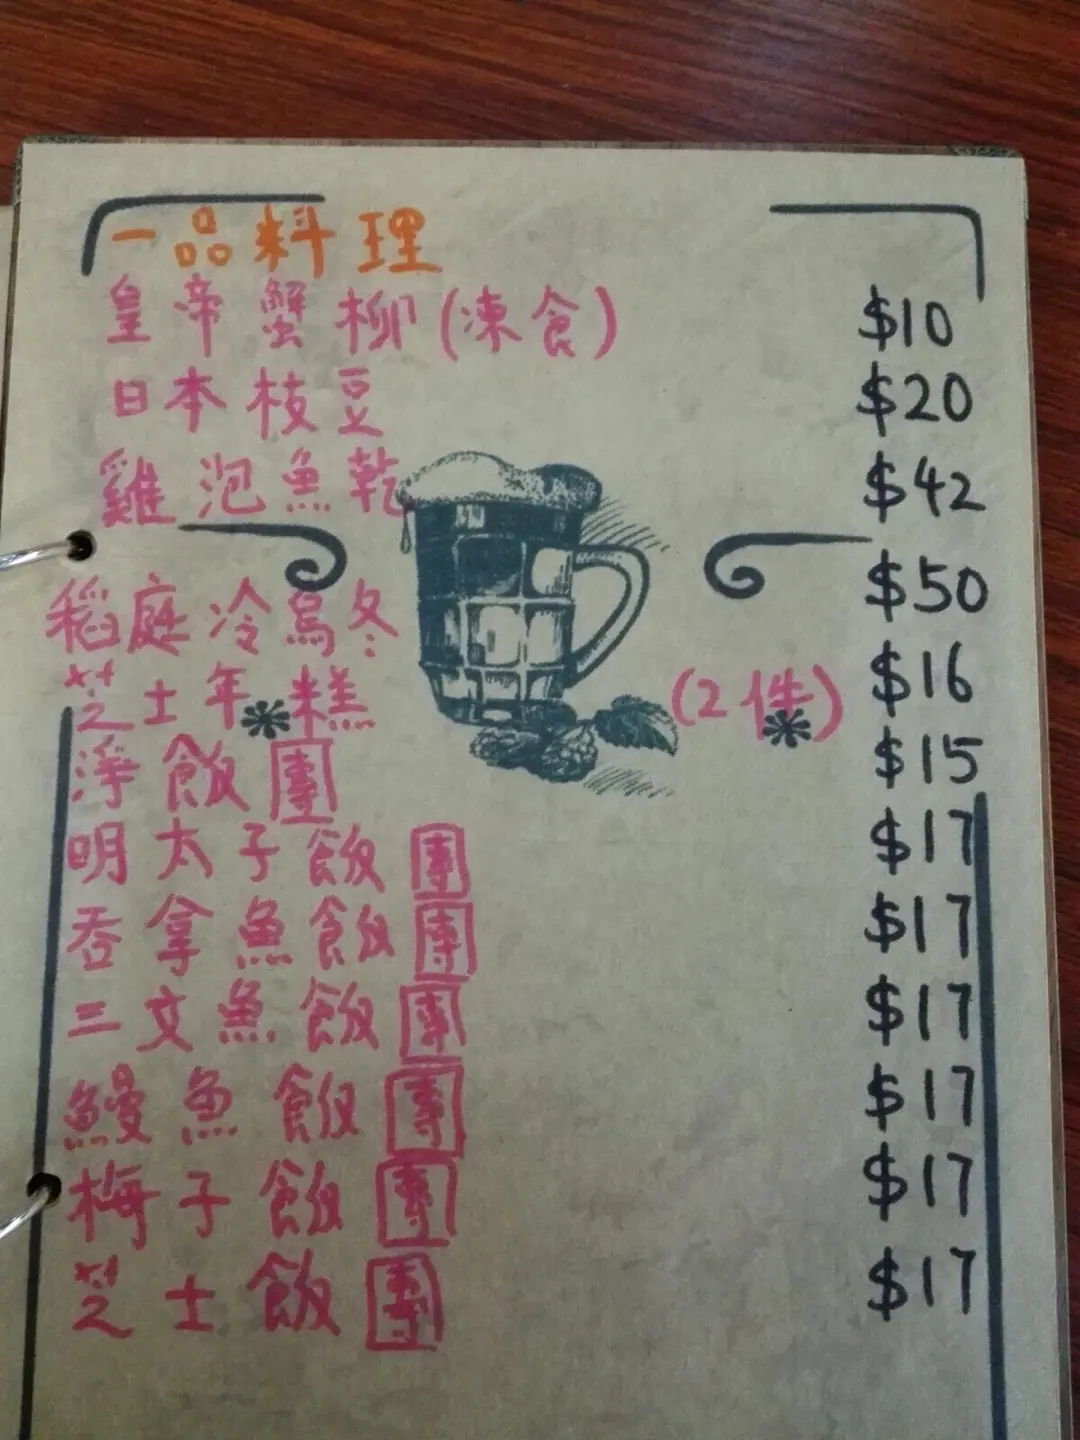 一品料理
皇帝蟹柳(凍食) $10
日本枝豆 $20
雞泡魚乾 $42
稻庭冷烏冬 $50
芝士年糕 (2件) $16
淨飯團 $15
明太子飯團 $17
吞拿魚飯團 $17
三文魚飯團 $17
鰻魚飯團 $17
梅子飯團 $17
芝士飯團 $17